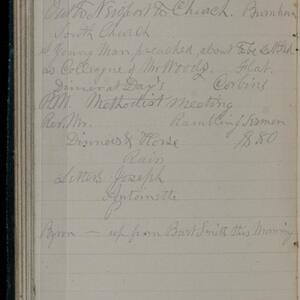 Out to Newport to Church. Burnham
South Church
a Young Man preached about to be settled
as Colleague of Mr Woods. Flat.
Dinner at Day's Corbins
P.M. Methodist Meeting
Rev. Mr. Rambling Sermon
Dinners & Horse $1.80
Rain
Letters Joseph
Antoinette
Byron — up from Bart Smith this Morning